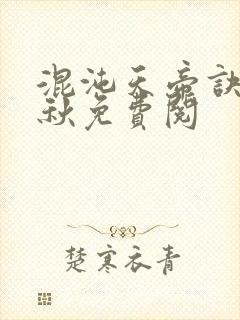 混沌天帝訣
秋免費閱
楚寒衣青